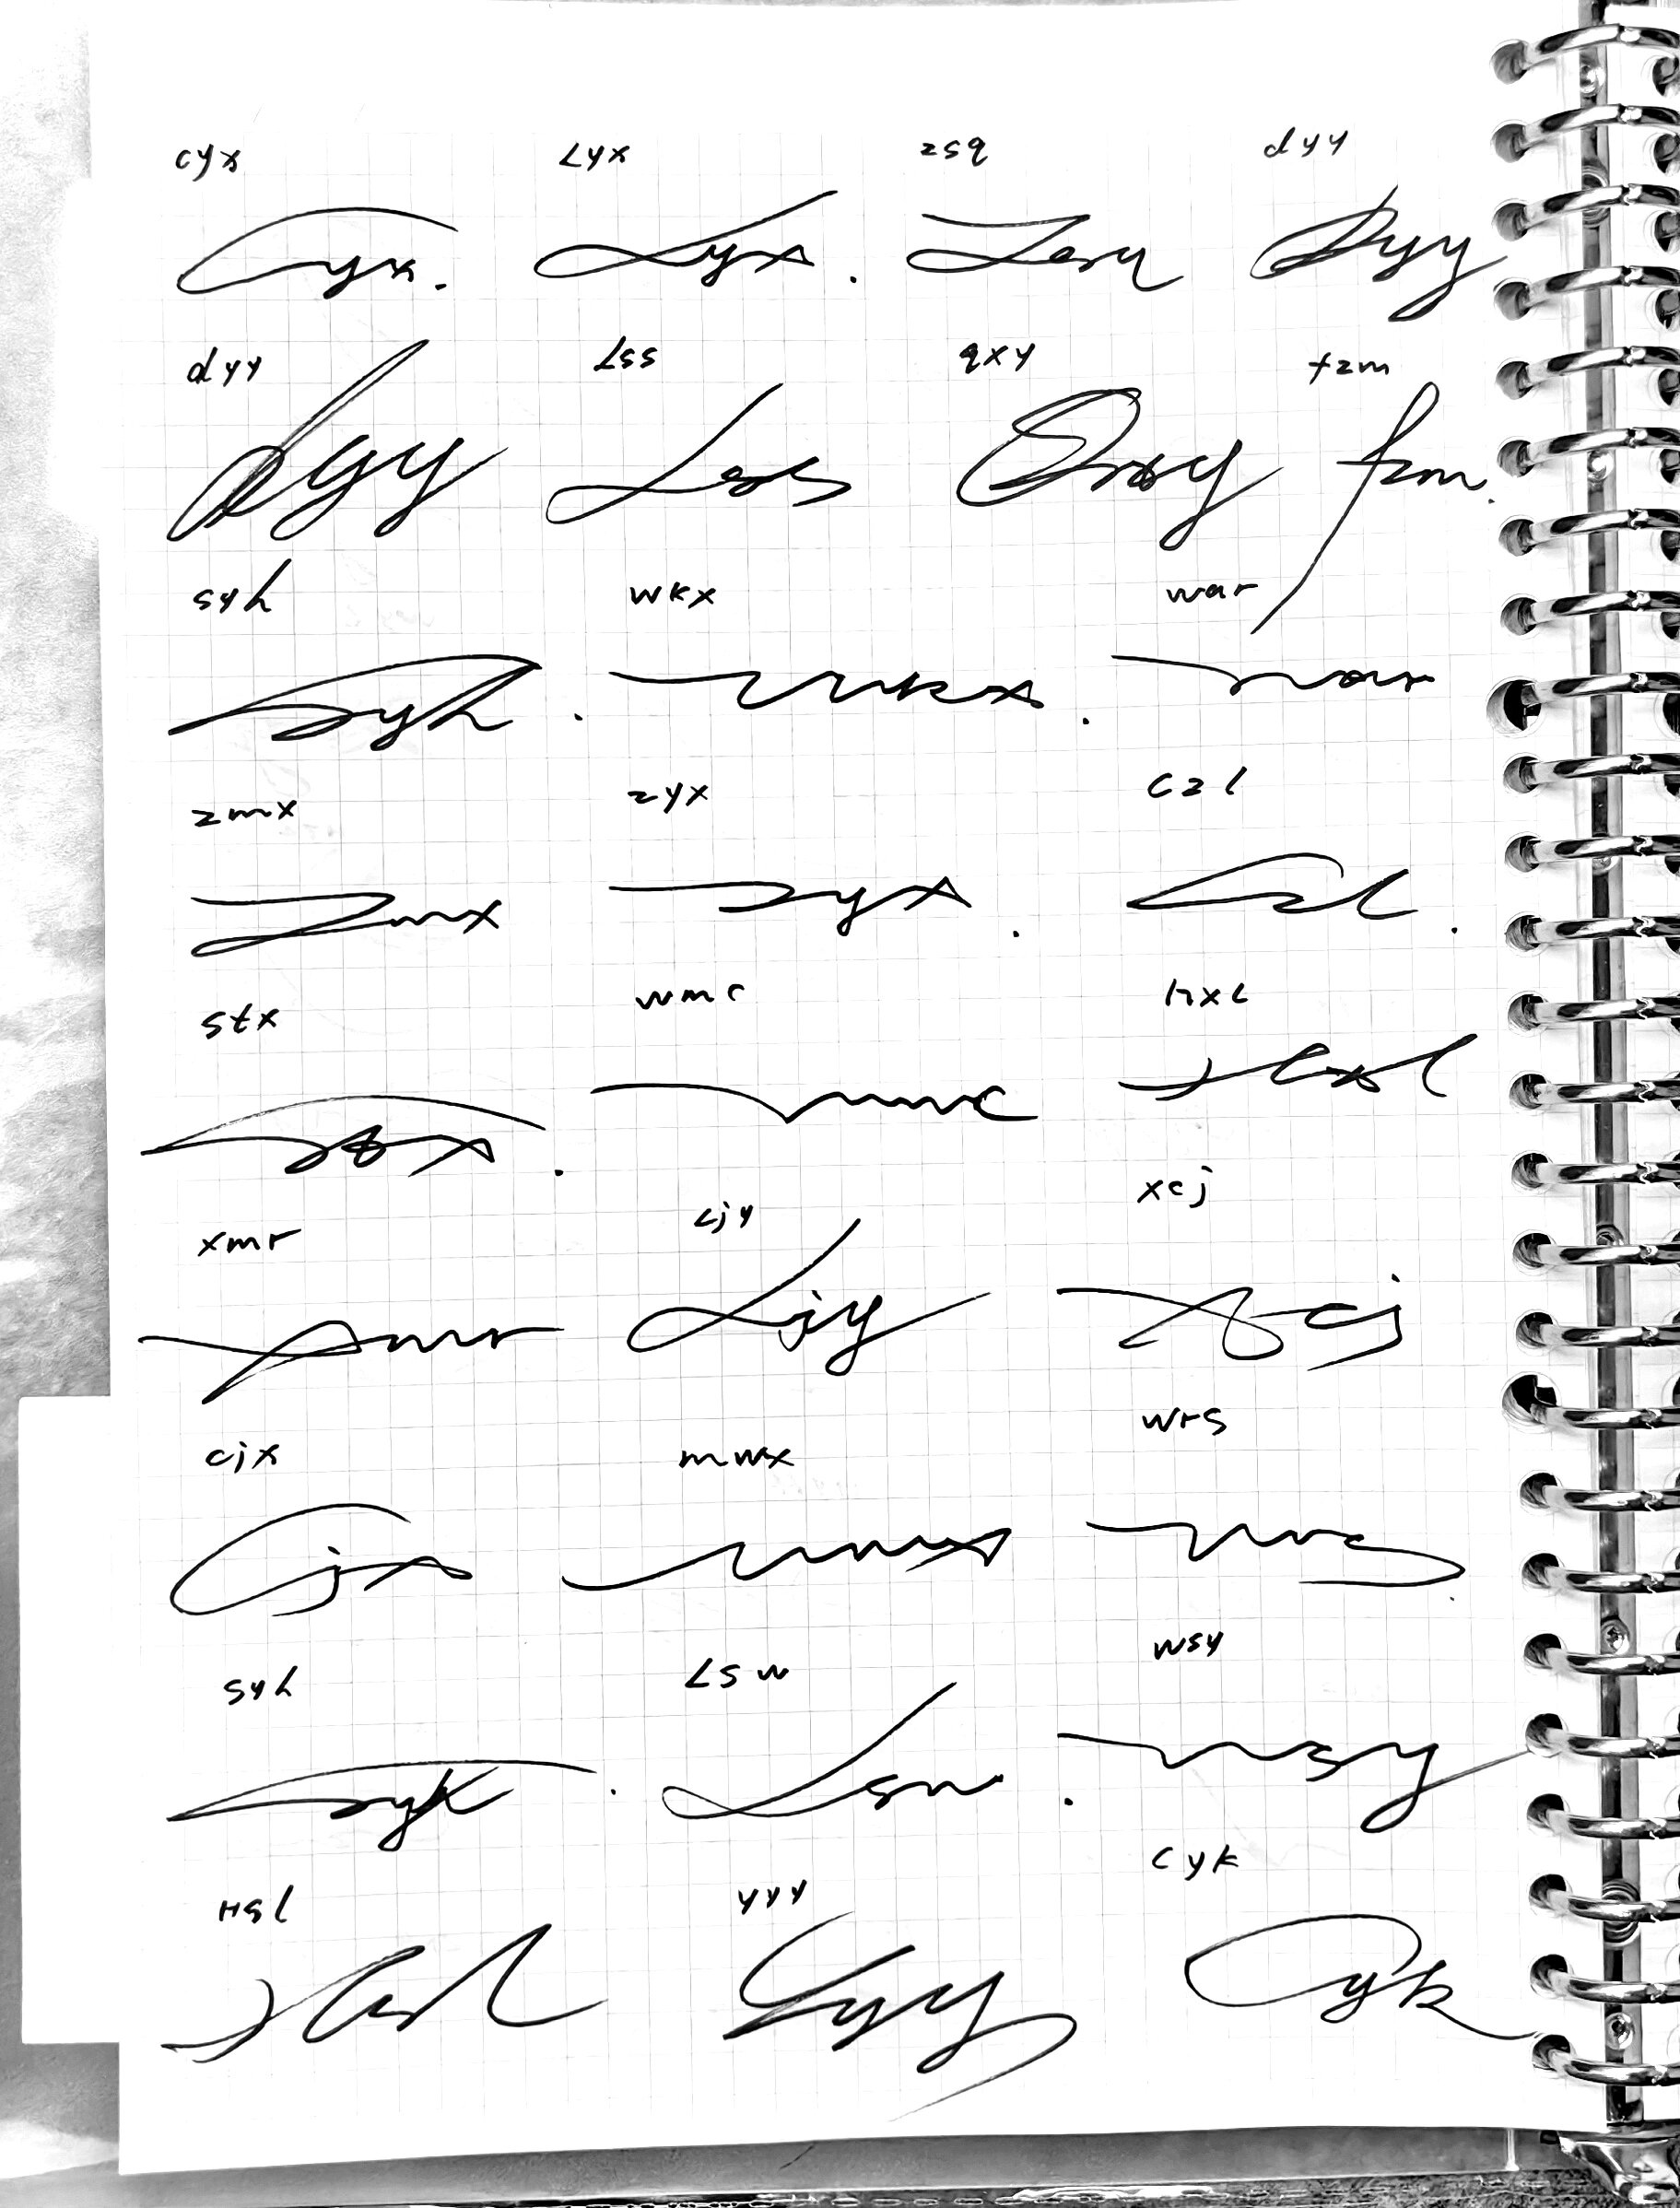 cyx Lyx zsq dyy
Cyx. Lyx. Zsq Dyy
dyy Lss qxy fzm
dyy Lss Qxy fzm.
syh wkx war
Syh. wkx. war
zmx zyx czl
Zmx zyx. Czl.
stx wmc Hxl
Stx. wmc Hxl
xmr Ljy xcj
xmr Ljy xcj
cjx mwx wrs
Cjx mwx wrs.
syh Lsw wsy
Syh. Lsw. wsy
Hsl yyy cyk
Hsl Yyy Cyk